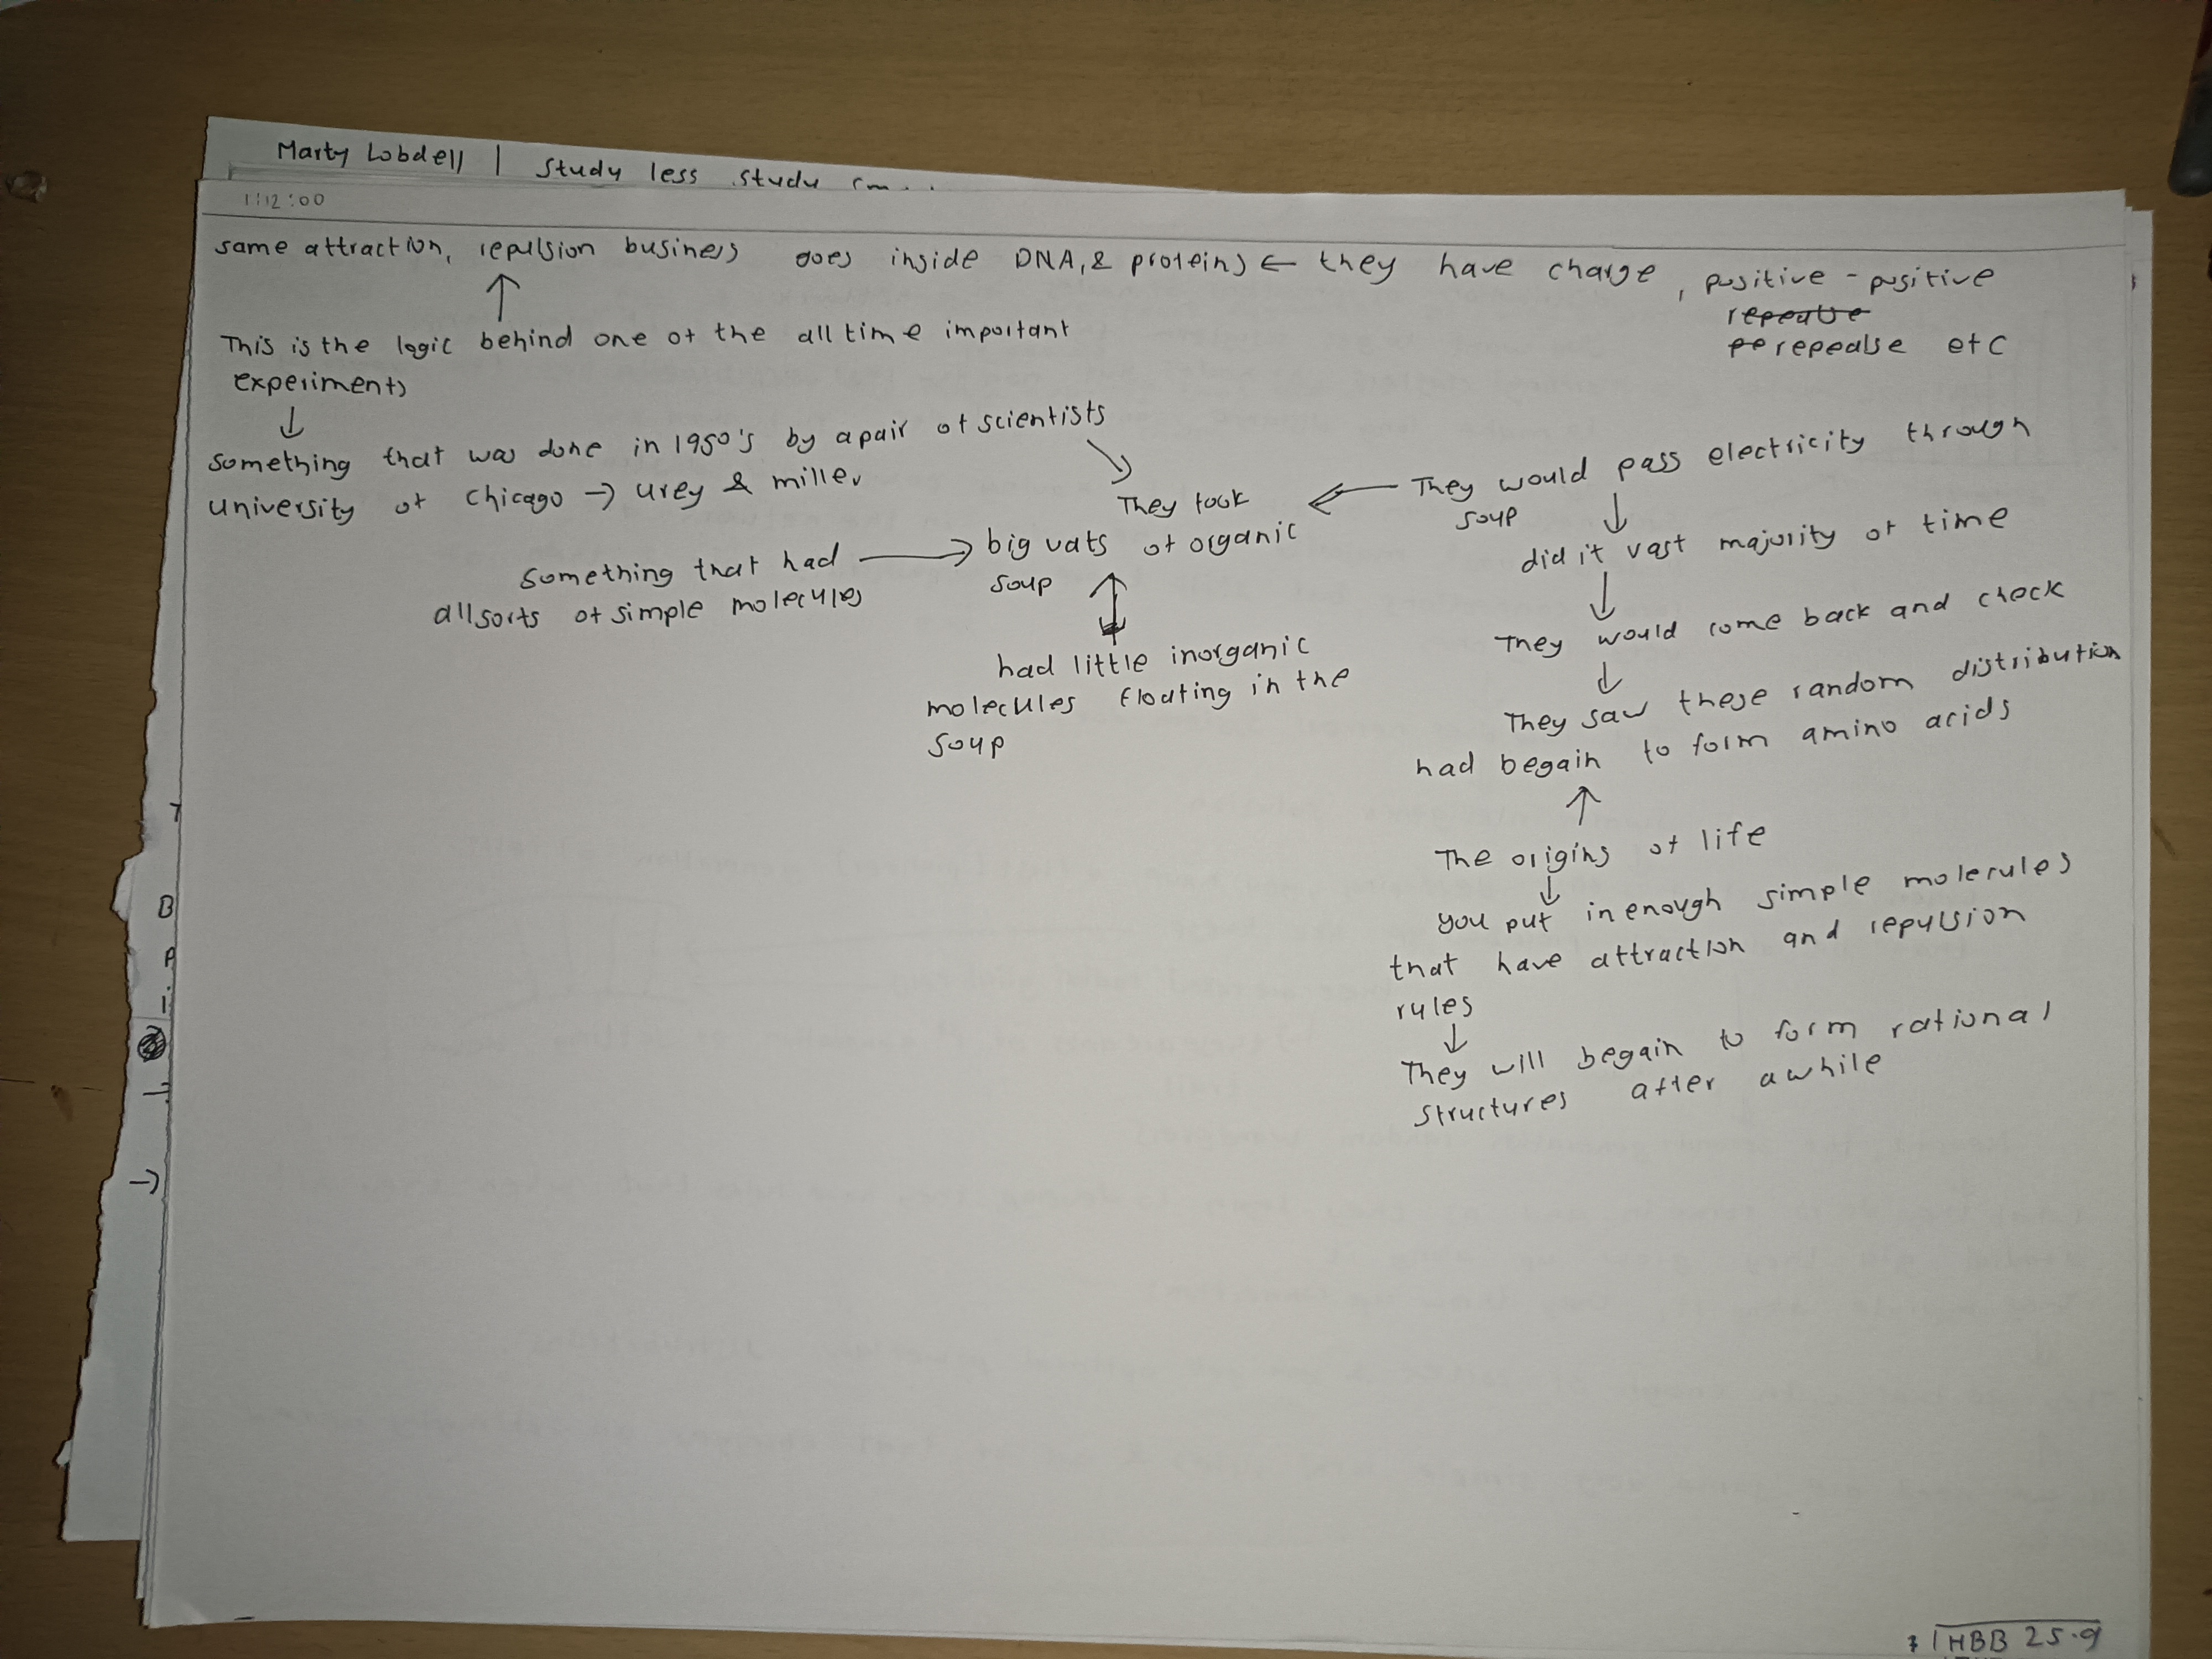 Marty Lobdell | Study less study sm...
1:12:00
same attraction, repulsion business goes inside DNA, & proteins ← they have charge, positive - positive
repealse
pe repealse etc
↑
This is the logic behind one of the all time important
experiments
↓
Something that was done in 1950's by a pair of scientists
university of Chicago → urey & miller
They took
big vats of organic
soup
Something that had →
all sorts of simple molecules
had little inorganic
molecules floating in the
soup
← They would pass electricity through
soup
↓
did it vast majority of time
↓
They would come back and check
↓
They saw these random distribution
had begain to form amino acids
↑
The origins of life
↓
you put in enough simple molecules
that have attraction and repulsion
rules
↓
They will begain to form rational
structures after a while
HBB 25.9
T
B